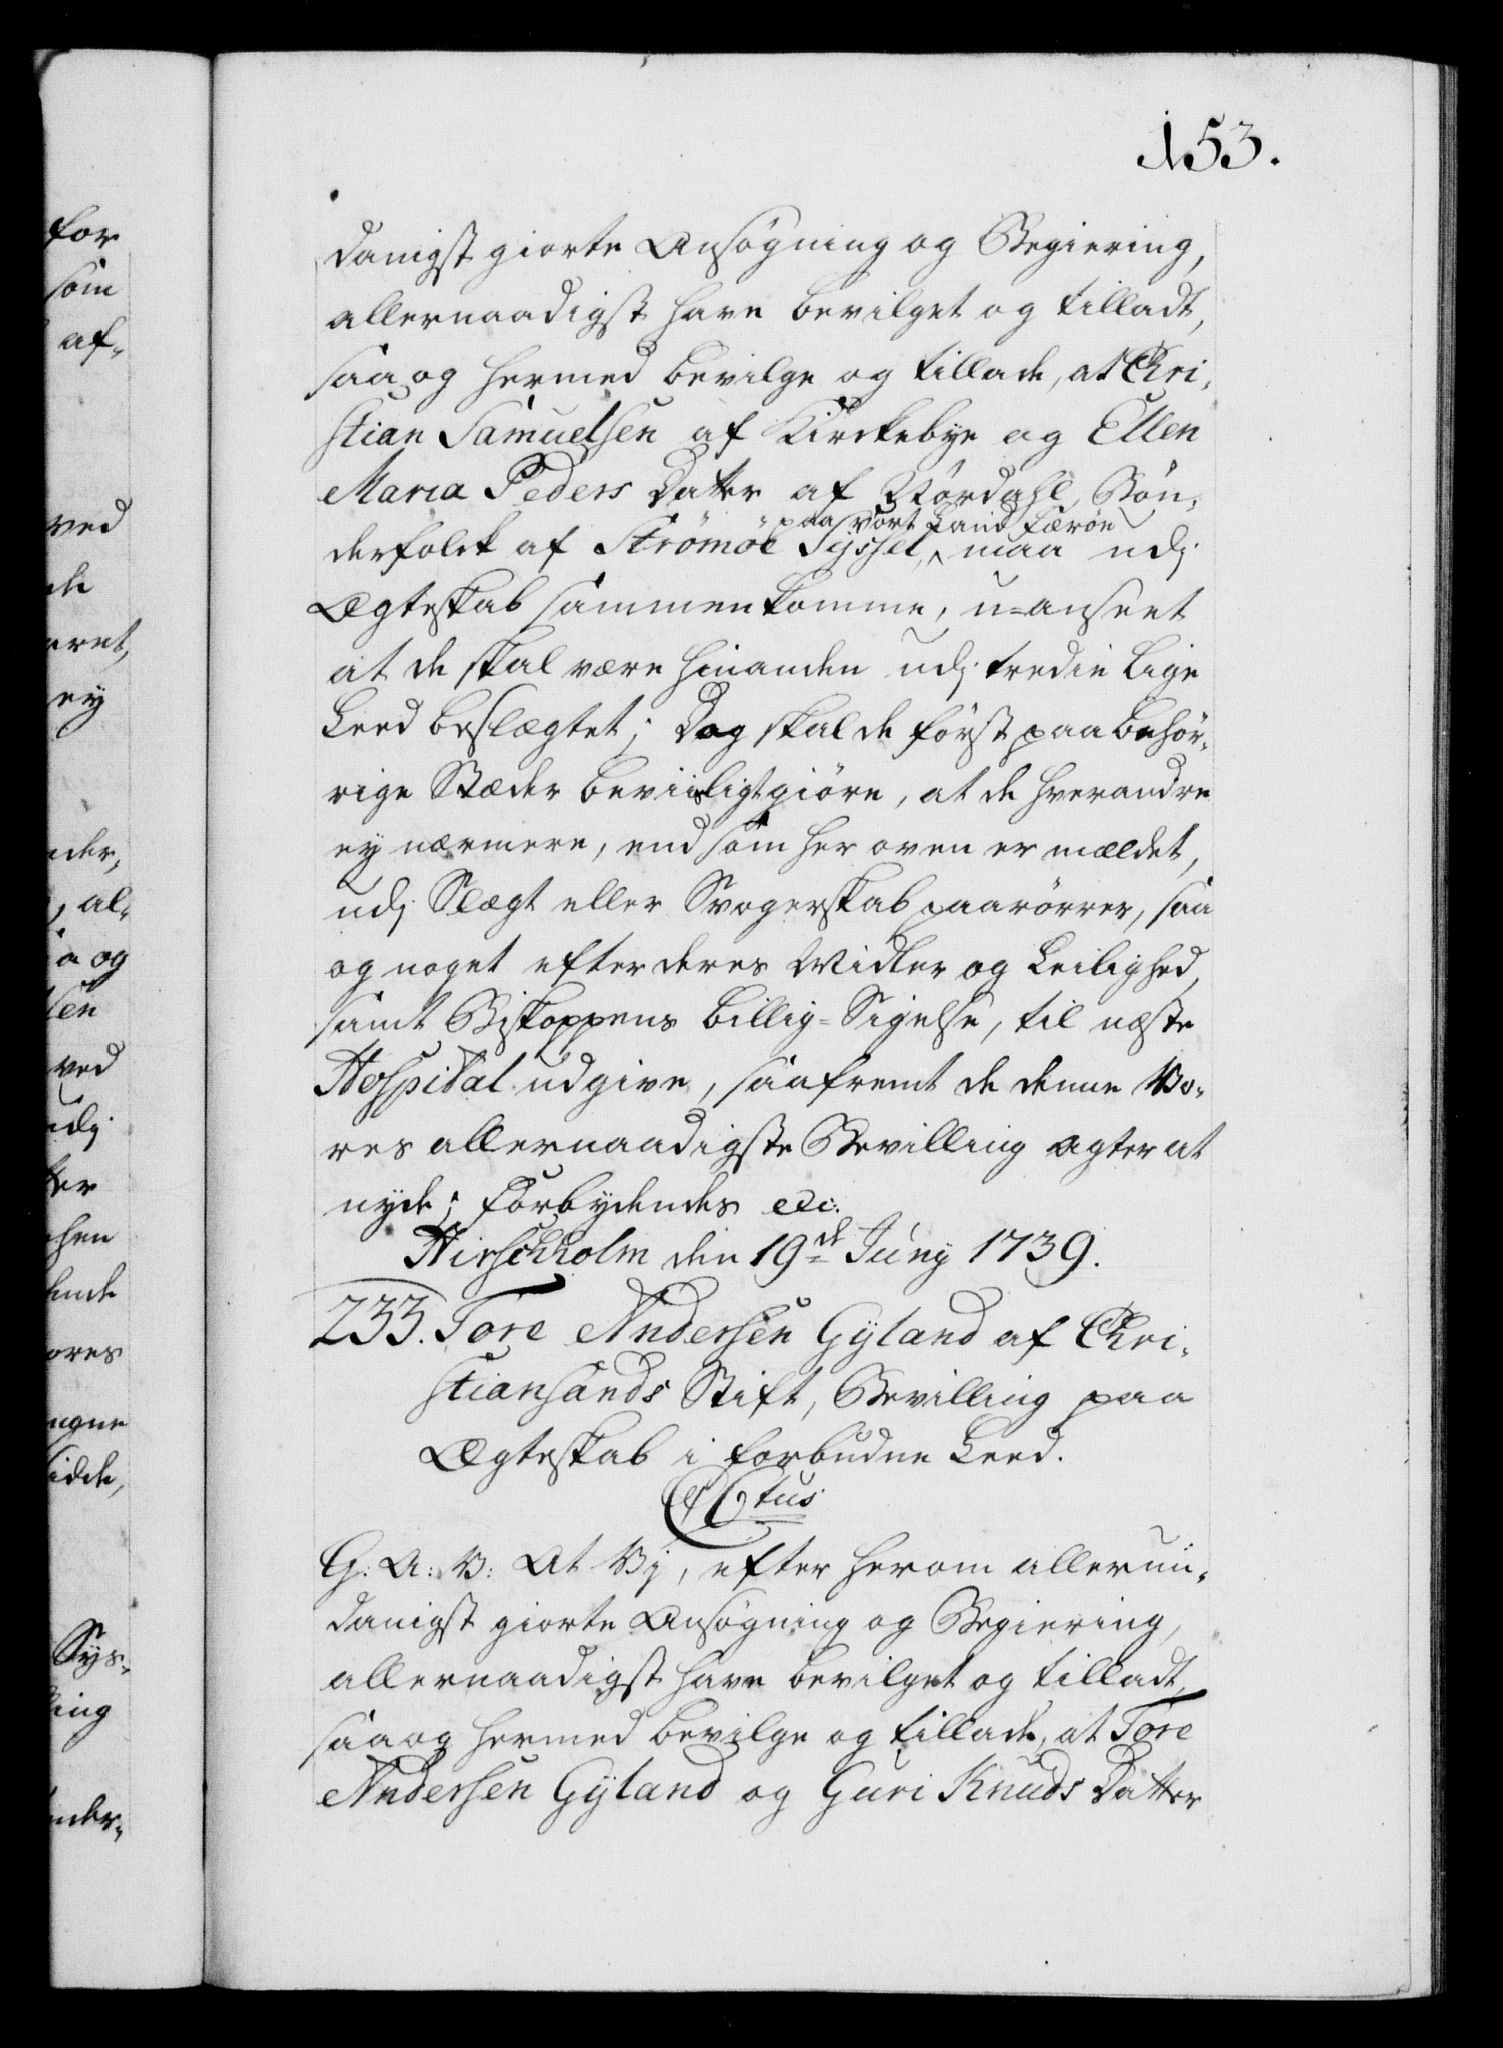 153.
for
som
af-
danigst giorte Ansøgning og Begiering,
allernaadigst have bevilget og tilladt,
saa og hermed bevilge og tillade, at Chri-
stian Samuelsen af Kirckebye og Ellen
Maria Peders Datter af Nördahl, Bön-
paa vort Land Færöe
derfolck af Strömöe Sÿssel, maa udj
Ægteskab sammenkomme, u=anseet
at de skal være hinanden udj tredie Lige
Leed beslægtet; Dog skal de först paa behör-
rige Stæder beviisligtgiöre, at de hverandre
ey nærmere, end som her oven er mældet,
udj Slægt eller Svogerskab paarörrer, saa
og noget efter deres Midler og Leilighed,
samt Biskoppens billig=Sigelse, til næste
Hospital udgive, saafremt de denne Vo-
res allernaadigste Bevilling agter at
nyde; Forbydendes etc:
Hirschholm den 19de Junÿ 1739.
233. Tore Andersen Gÿland af Chri-
stiansands Stift, Bevilling paa
Ægteskab i forbudne Leed.
C 6tus
G: A: V: At Vj, efter herom allerun-
danigst giorte Ansøgning og Begiering,
allernaadigst have bevilget og tilladt,
saa og hermed bevilge og tillade, at Tore
Andersen Gÿland og Guri Knuds Datter
ved
ey
al-
a og
sen
ved
udj
Sys-
ing